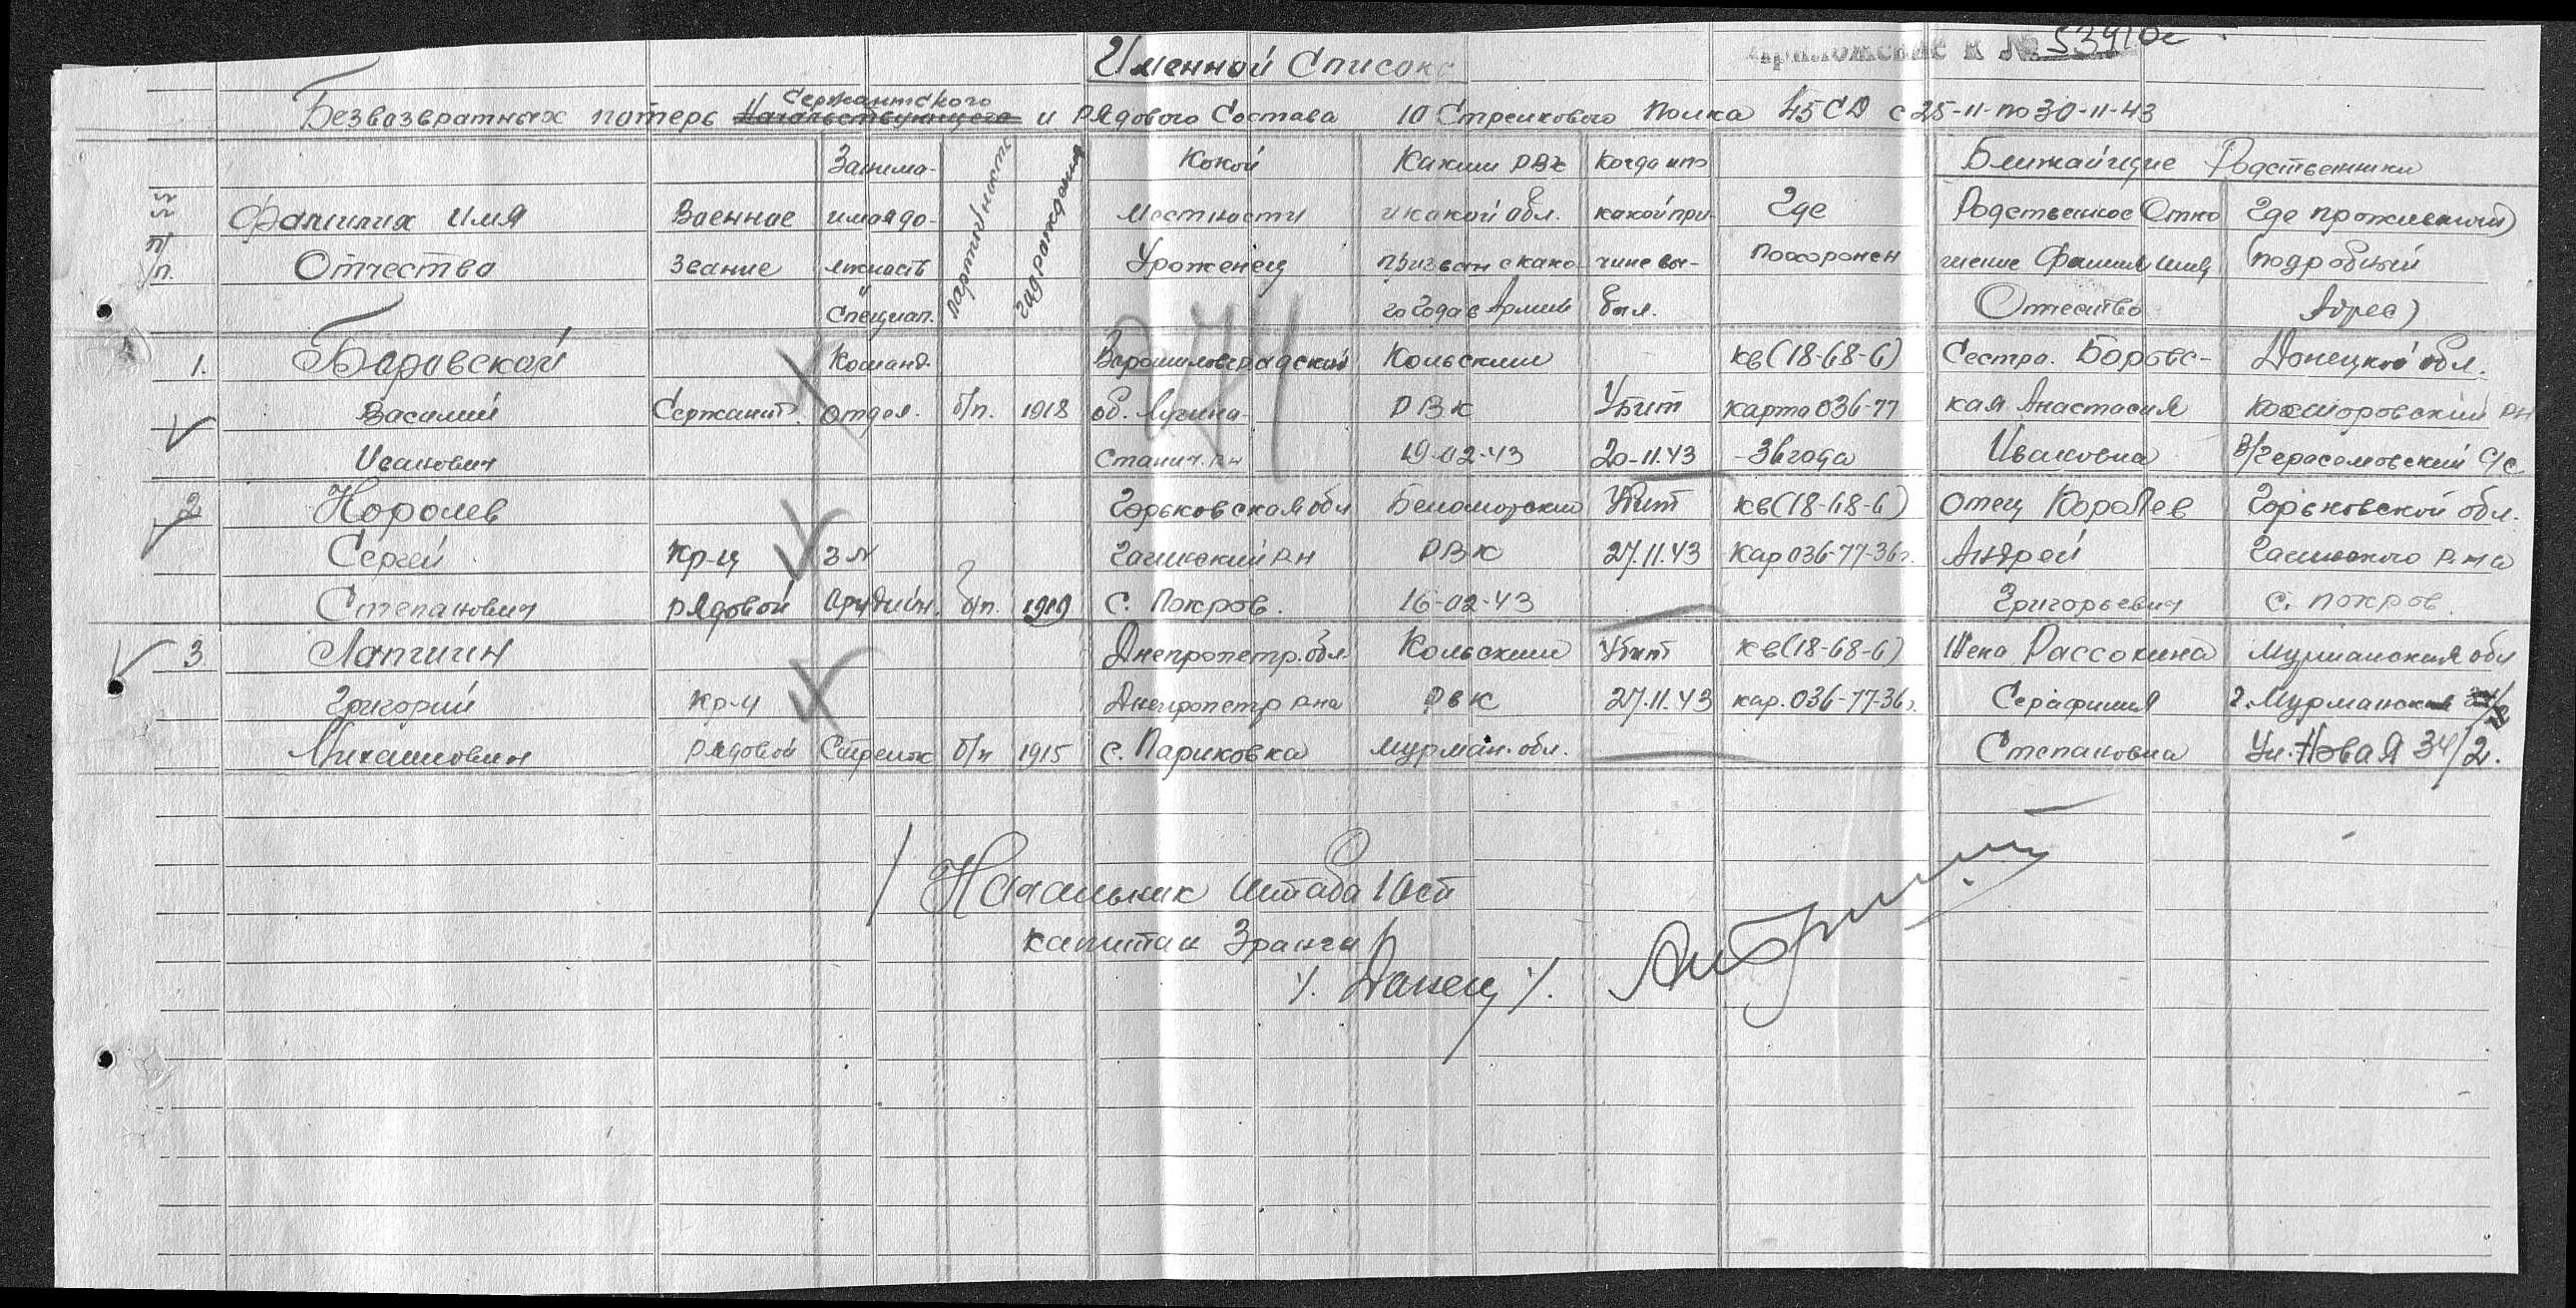 Приложение к № 53910с
Именной Список
Сержантского
Безвозвратных потерь Начальствующего и Рядового Состава 10 Стрелкового Полка 45 СД с 25-11-по 30-11-43
Занима- Какой Каким РВК Когда и по Ближайщие Родственники
Фамилия Имя Военное имая до- партийность год рождения местности и какой обл. какой при- Где Родственное Отно Где проживают
п/п. Отчество Звание лжность Уроженец призван с како- чине вы- похоронен шение Фамил имя (подробный
и Специал. го Года в Армии был. Отчество Адрес)
1. Боровской Команд. Ворошиловградский Кольским кв(18-68-6) Сестра. Боровс- Донецкой обл.
Василий Сержант. отдел. б/п. 1918 об. РВК Убит карта 036-77 кая Анастасия рн
Иванович Станич. рн 19-02-43 20-11.43 -36 года Ивановна с/с
2 Королев Горьковская обл Беломорским Убит кв(18-68-6) Отец Королев Горьковской обл.
Сергей Кр-ц рн РВК 27.11.43 кар 036-77-36г. Андрей р-на
Степанович рядовой б/п. 1919 с. Покров. 16-02-43 Григорьевич с. покров.
3 Лапчин Днепропетр. обл. Кольским Убит кв(18-68-6) Жена Рассохина Мурманская обл
Григорий Кр-ц Днепропетр р-на РВК 27.11.43 кар. 036-77-36г. Серафима г. Мурманск
Михайлович рядовой Стрелок б/п 1915 с. Париковка мурман. обл. Степановна Ул. Новая 34/2.
Начальник штаба 10сп
капитан 3 ранга
/. Данец /.